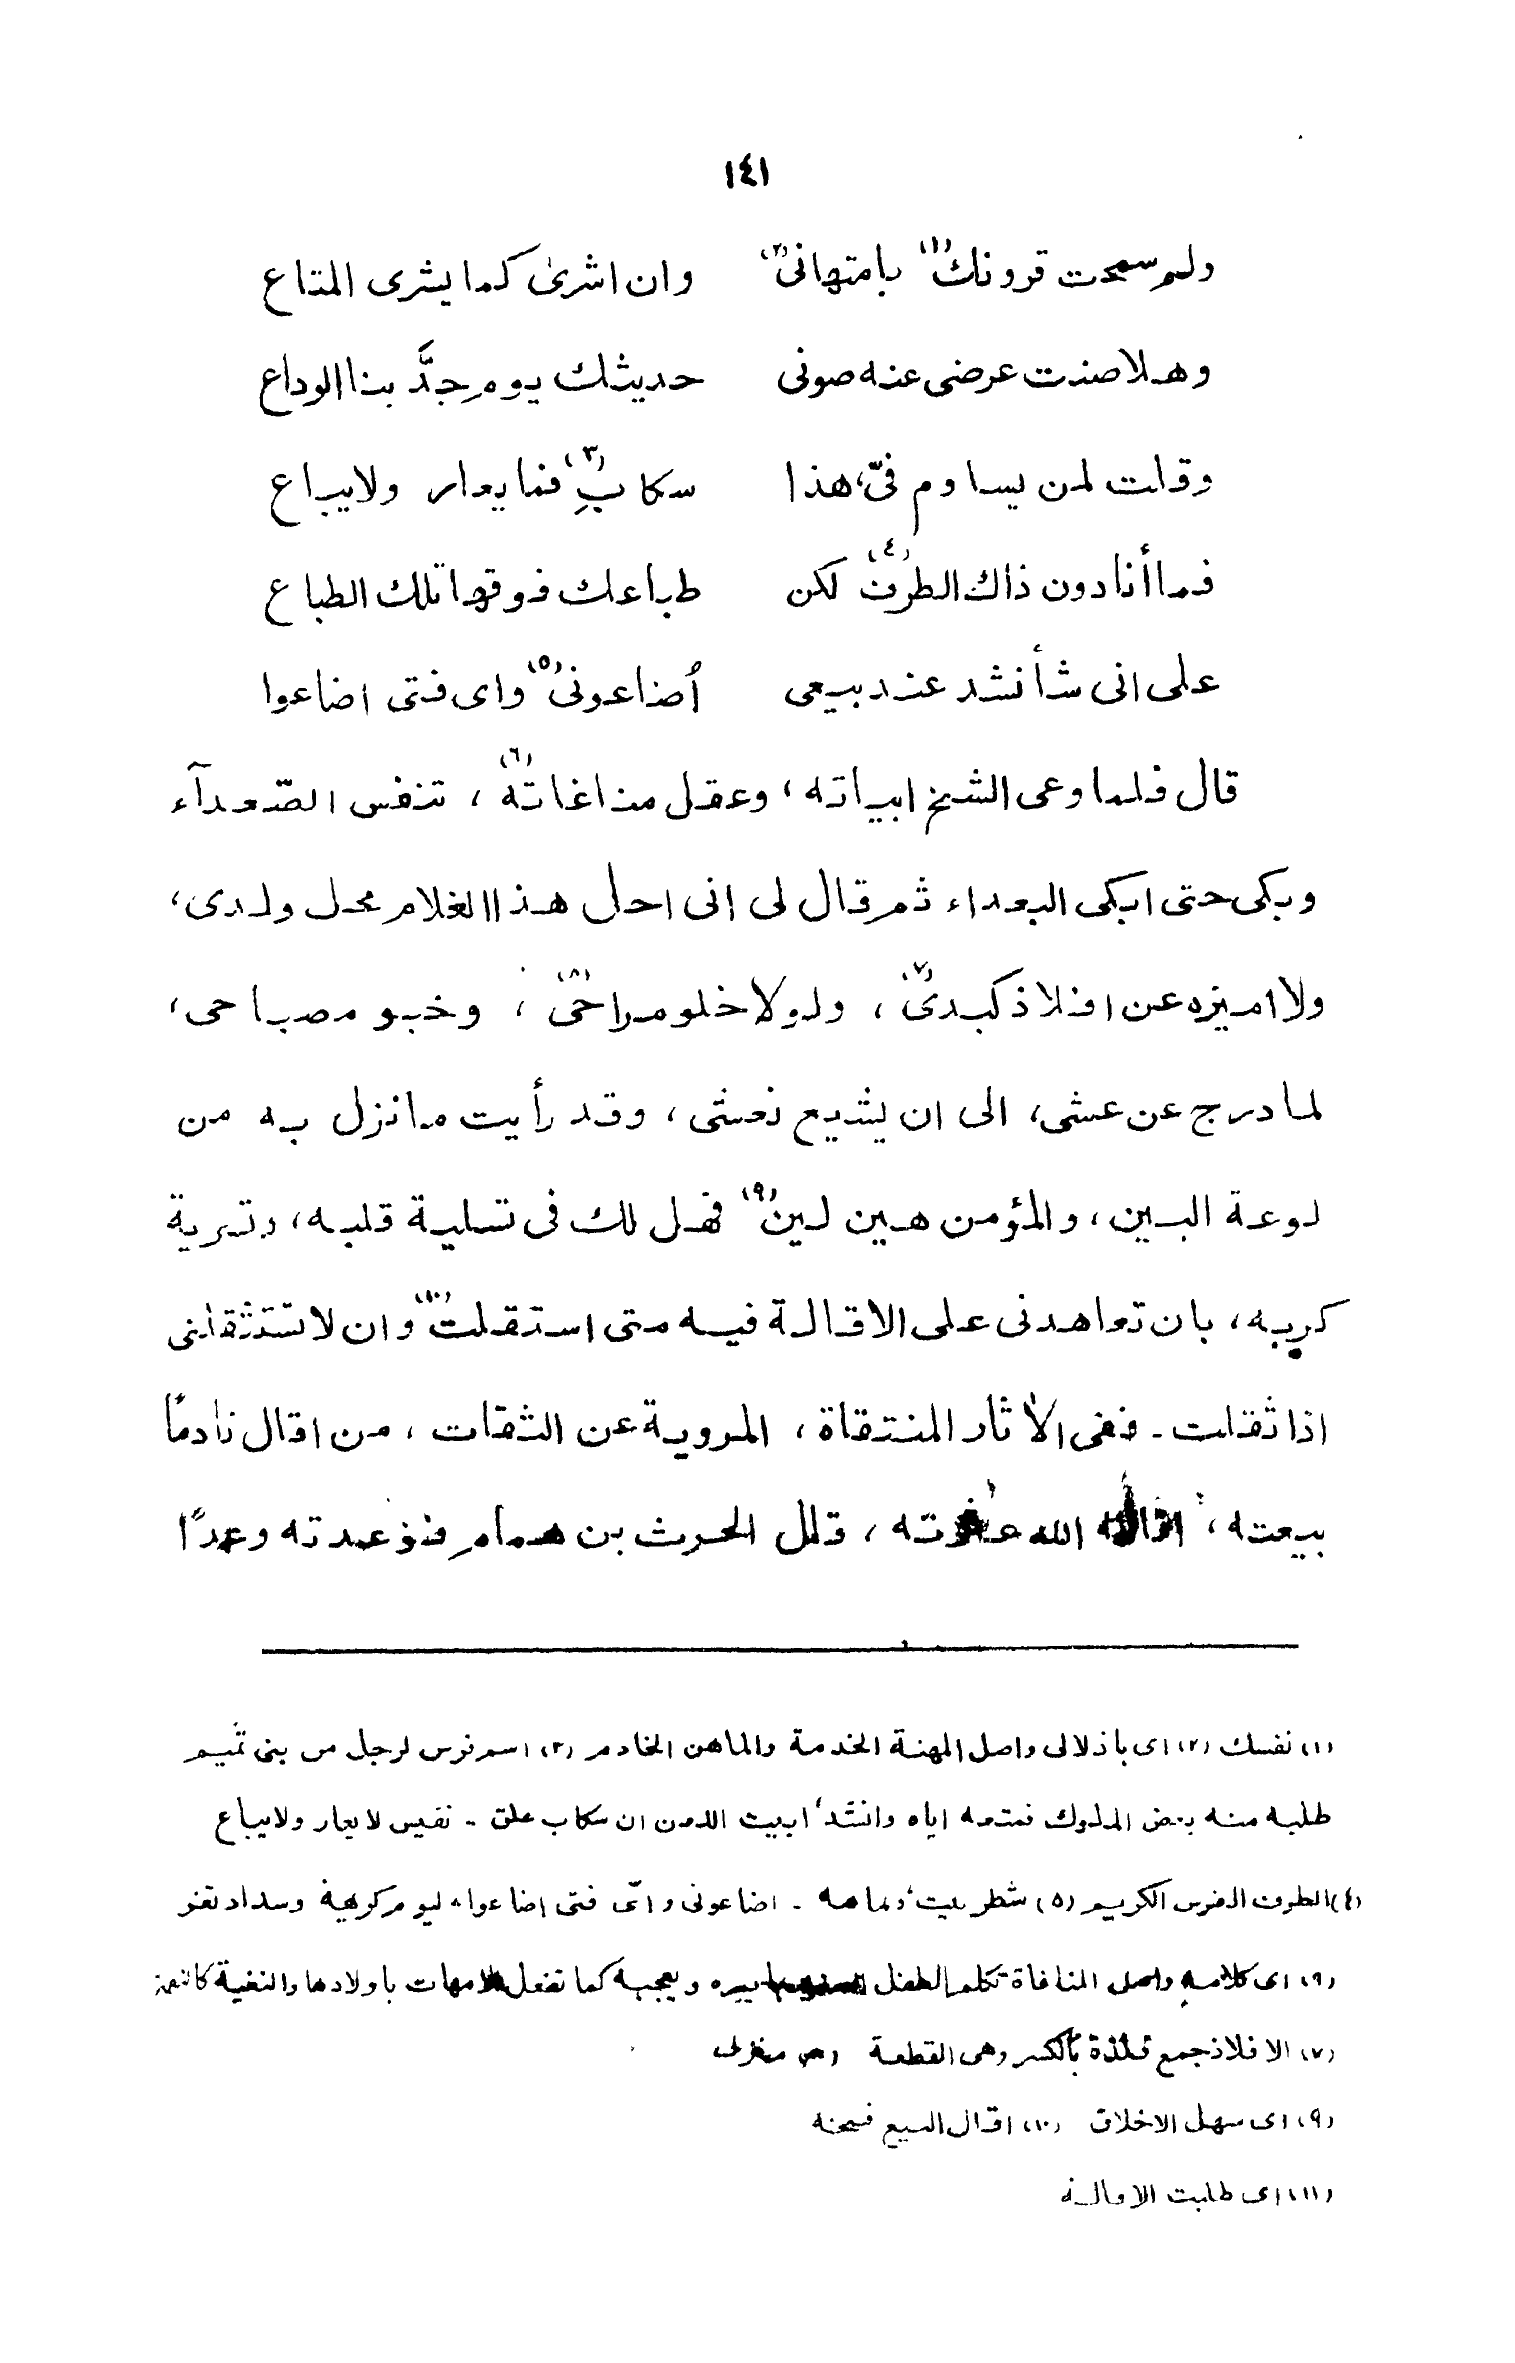 ١٤١
ولم سمحت قرونك (١) بامتهانى (٢) وان اشرىٰ كما يشرى المتاع
وهلا صنت عرضى عنه صونى حديثك يوم جدَّ بنا الوداع
وقلت لمن يساوم فىّ، هذا سكابِ (٣) فما يعار ولا يباع
فما أنا دون ذاك الطرف (٤) لكن طباعك فوقها تلك الطباع
على انى سأنشد عند بيعى أضاعونى (٥) واى فتى اضاعوا
قال فلما وعى الشيخ ابياته، وعقل مناغاته (٦)، تنفس الصّعدآء
وبكى حتى ابكى البعداء ثم قال لى انى احل هذا الغلام محل ولدى،
ولا اميزه عن افلاذ كبدى (٧)، ولولا خلو مراحى (٨)، وخبو مصباحى،
لما درج عن عشى، الى ان يشيع نعشى، وقد رأيت ما نزل به من
لوعة البين، والمؤمن هين لين (٩) فهل لك فى تسلية قلبه، وتسرية
كربه، بان تعاهدنى على الاقالة فيه متى استقلت (١٠) وان لا تستثقلنى
اذا ثقلت ـ ففى الاٰثار المنتقاة، المروية عن الثقات، من اقال نادمًا
بيعته، اقاله الله عثرته، قال الحرث بن همام فوعدته وعدًا
(١) نفسك (٢) اى باذلالى واصل المهنة الخدمة والماهن الخادم (٣) اسم فرس لرجل من بنى تميم
طلبه منه بعض الملوك فمنعه اياه وانشد ابيت اللعن ان سكاب علق ـ نفيس لا يعار ولا يباع
(٤) الطرف الفرس الكريم (٥) شطر بيت وتمامه ـ اضاعونى واىّ فتى اضاعوا، ليوم كريهة وسداد ثغر
(٩) اى كلامه واصل المناغاة تكلم الطفل بما يسره ويعجبه كما تفعل الامهات باولادها والنغية كالنغمة
(٧) الافلاذ جمع فلذة بالكسر وهى القطعة (٨) منزلى
(٩) اى سهل الاخلاق (١٠) اقال البيع فسخه
(١١) اى طلبت الاقالة